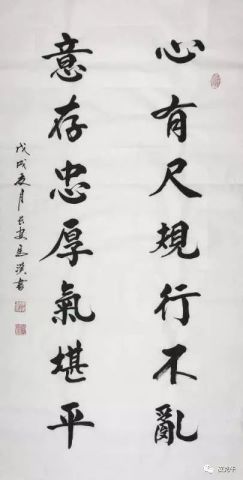 心有尺規行不亂
意存忠厚氣堪平
戊戌夏月长安書